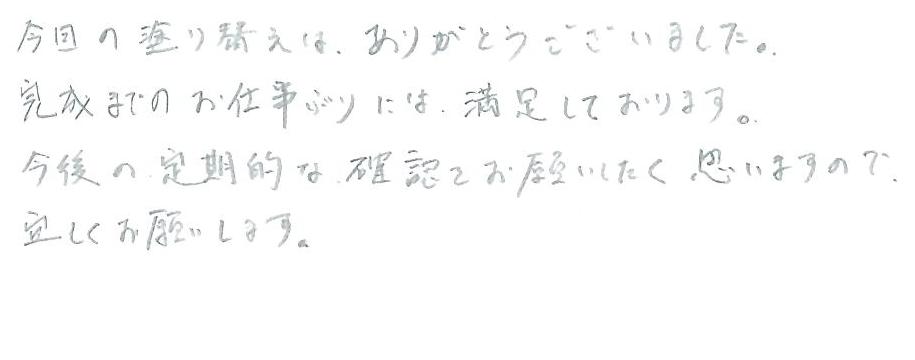 今回の塗り替えは、ありがとうございました。
完成までのお仕事ぶりには、満足しております。
今後の定期的な確認をお願いしたく思いますので、
宜しくお願いします。